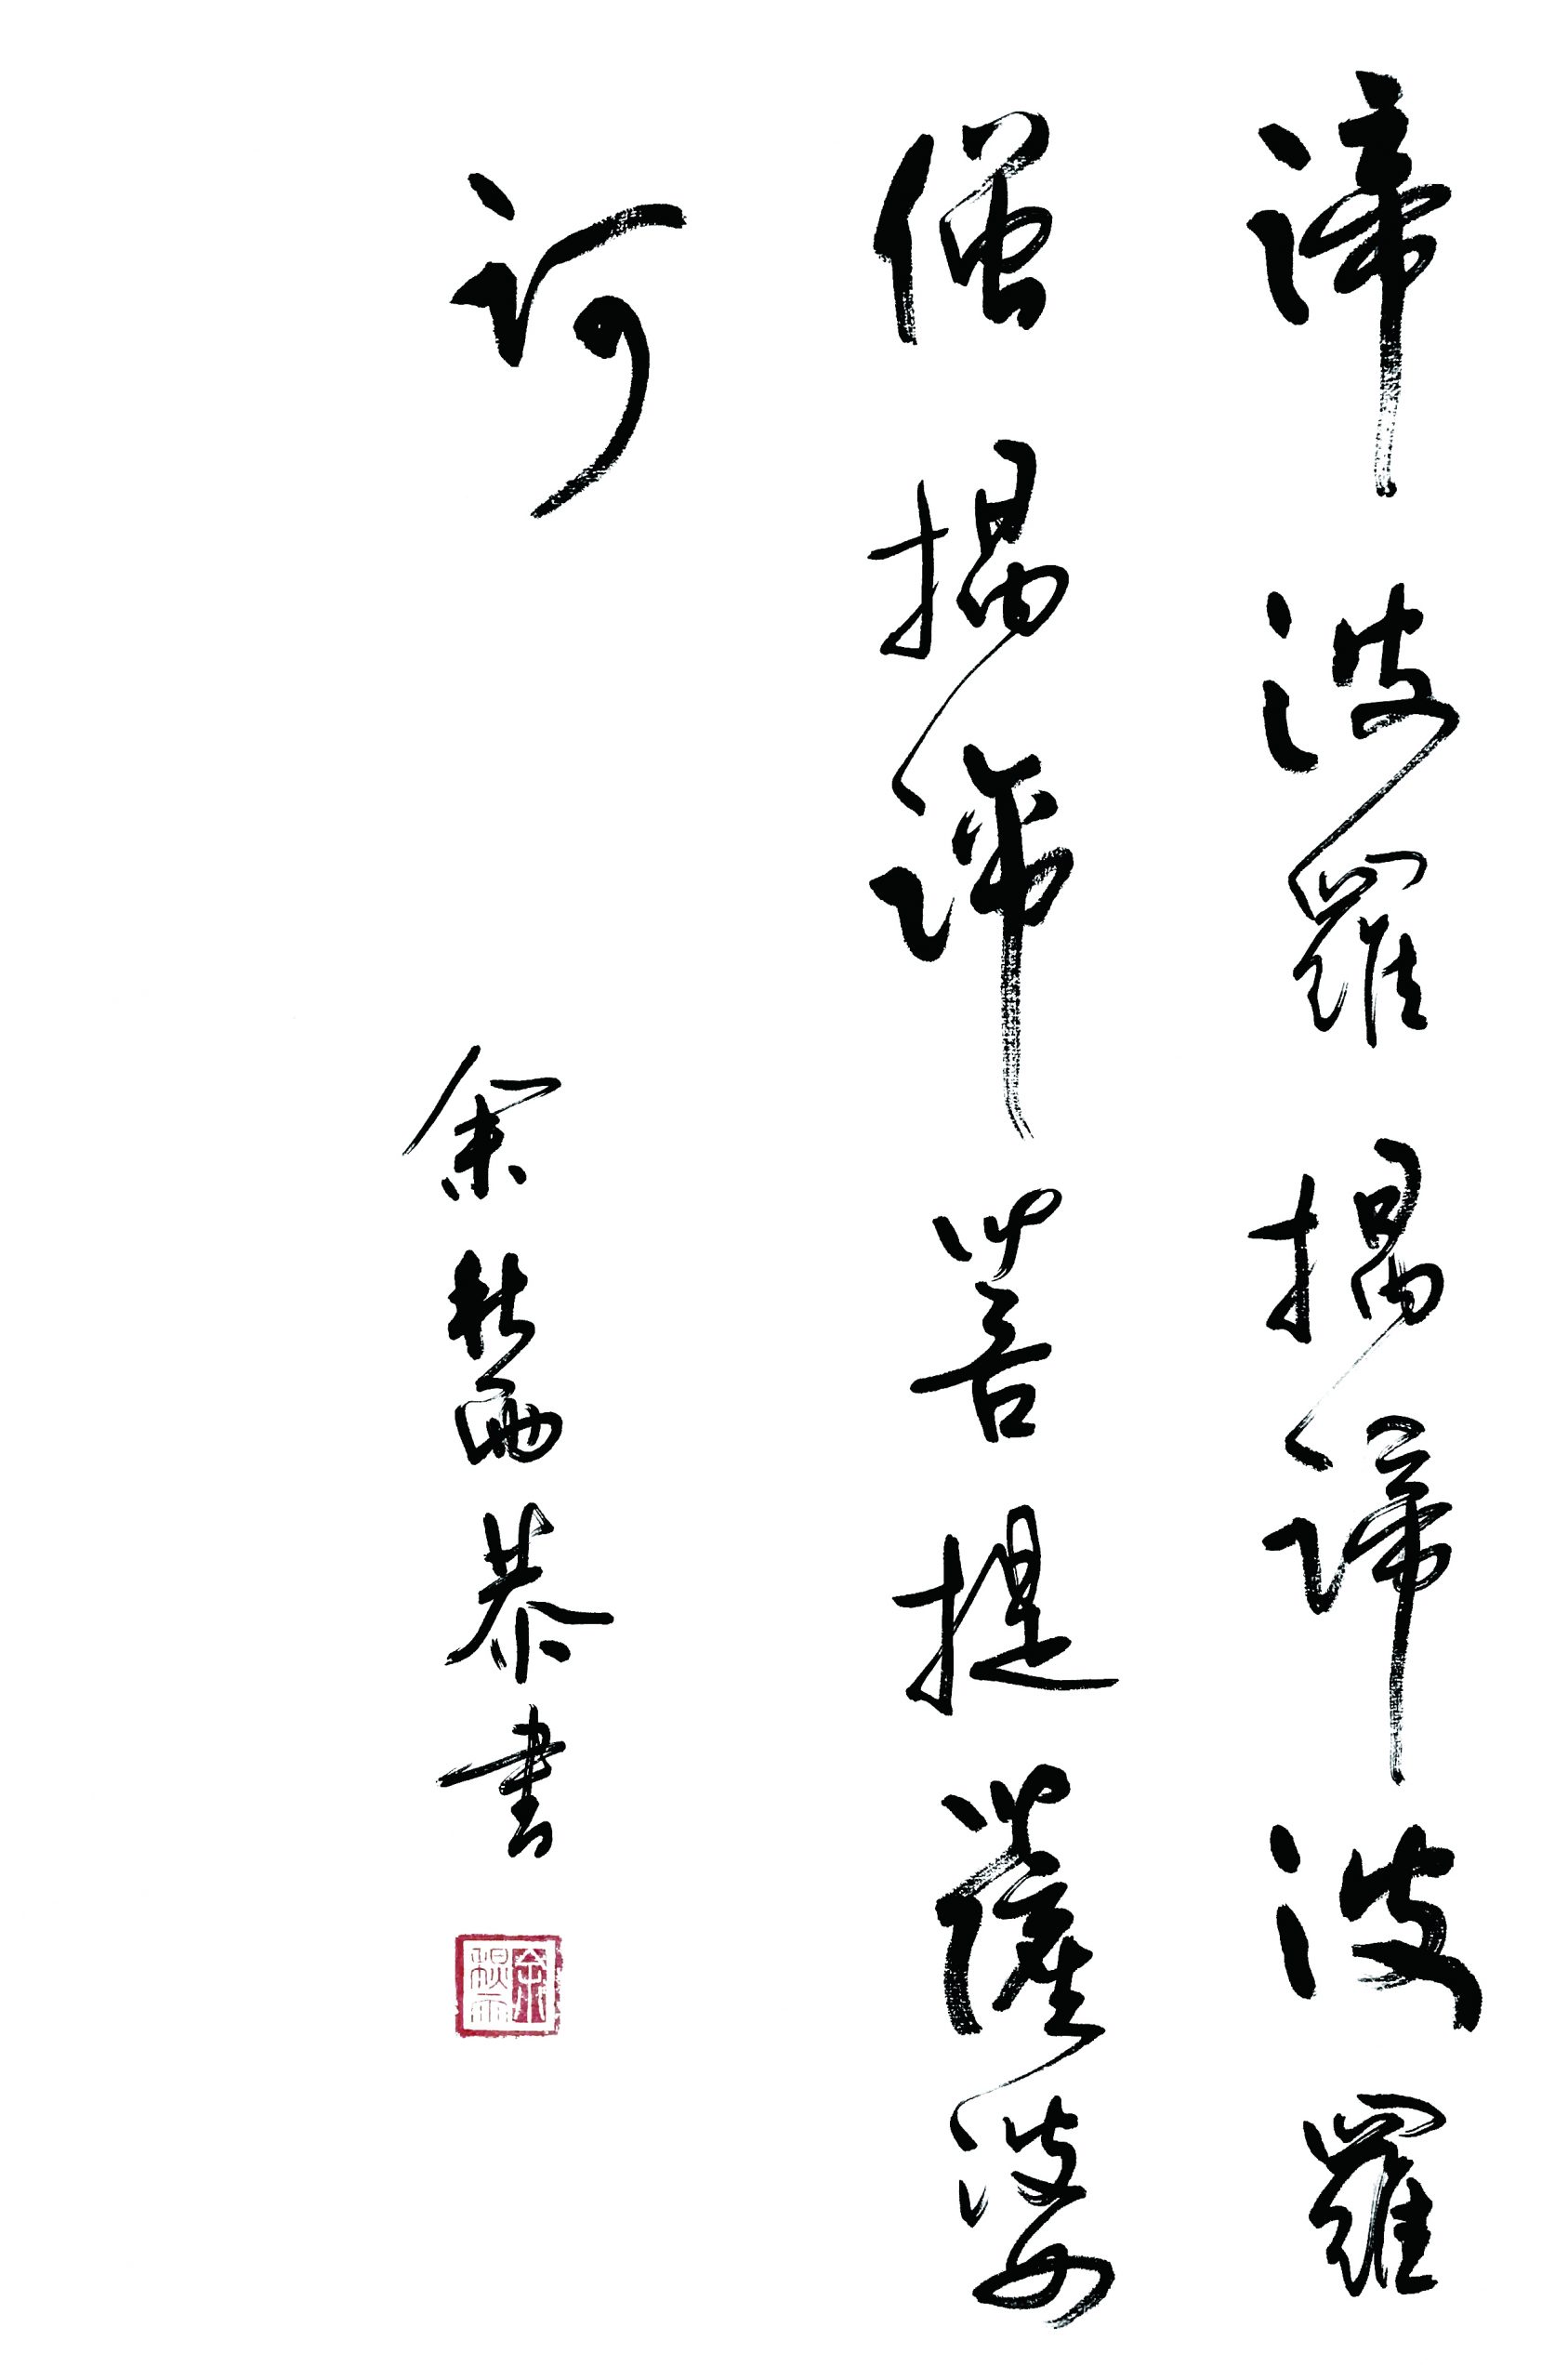 諦波羅揭諦波羅
僧揭諦菩提薩婆
訶
余秋雨恭書
余秋雨